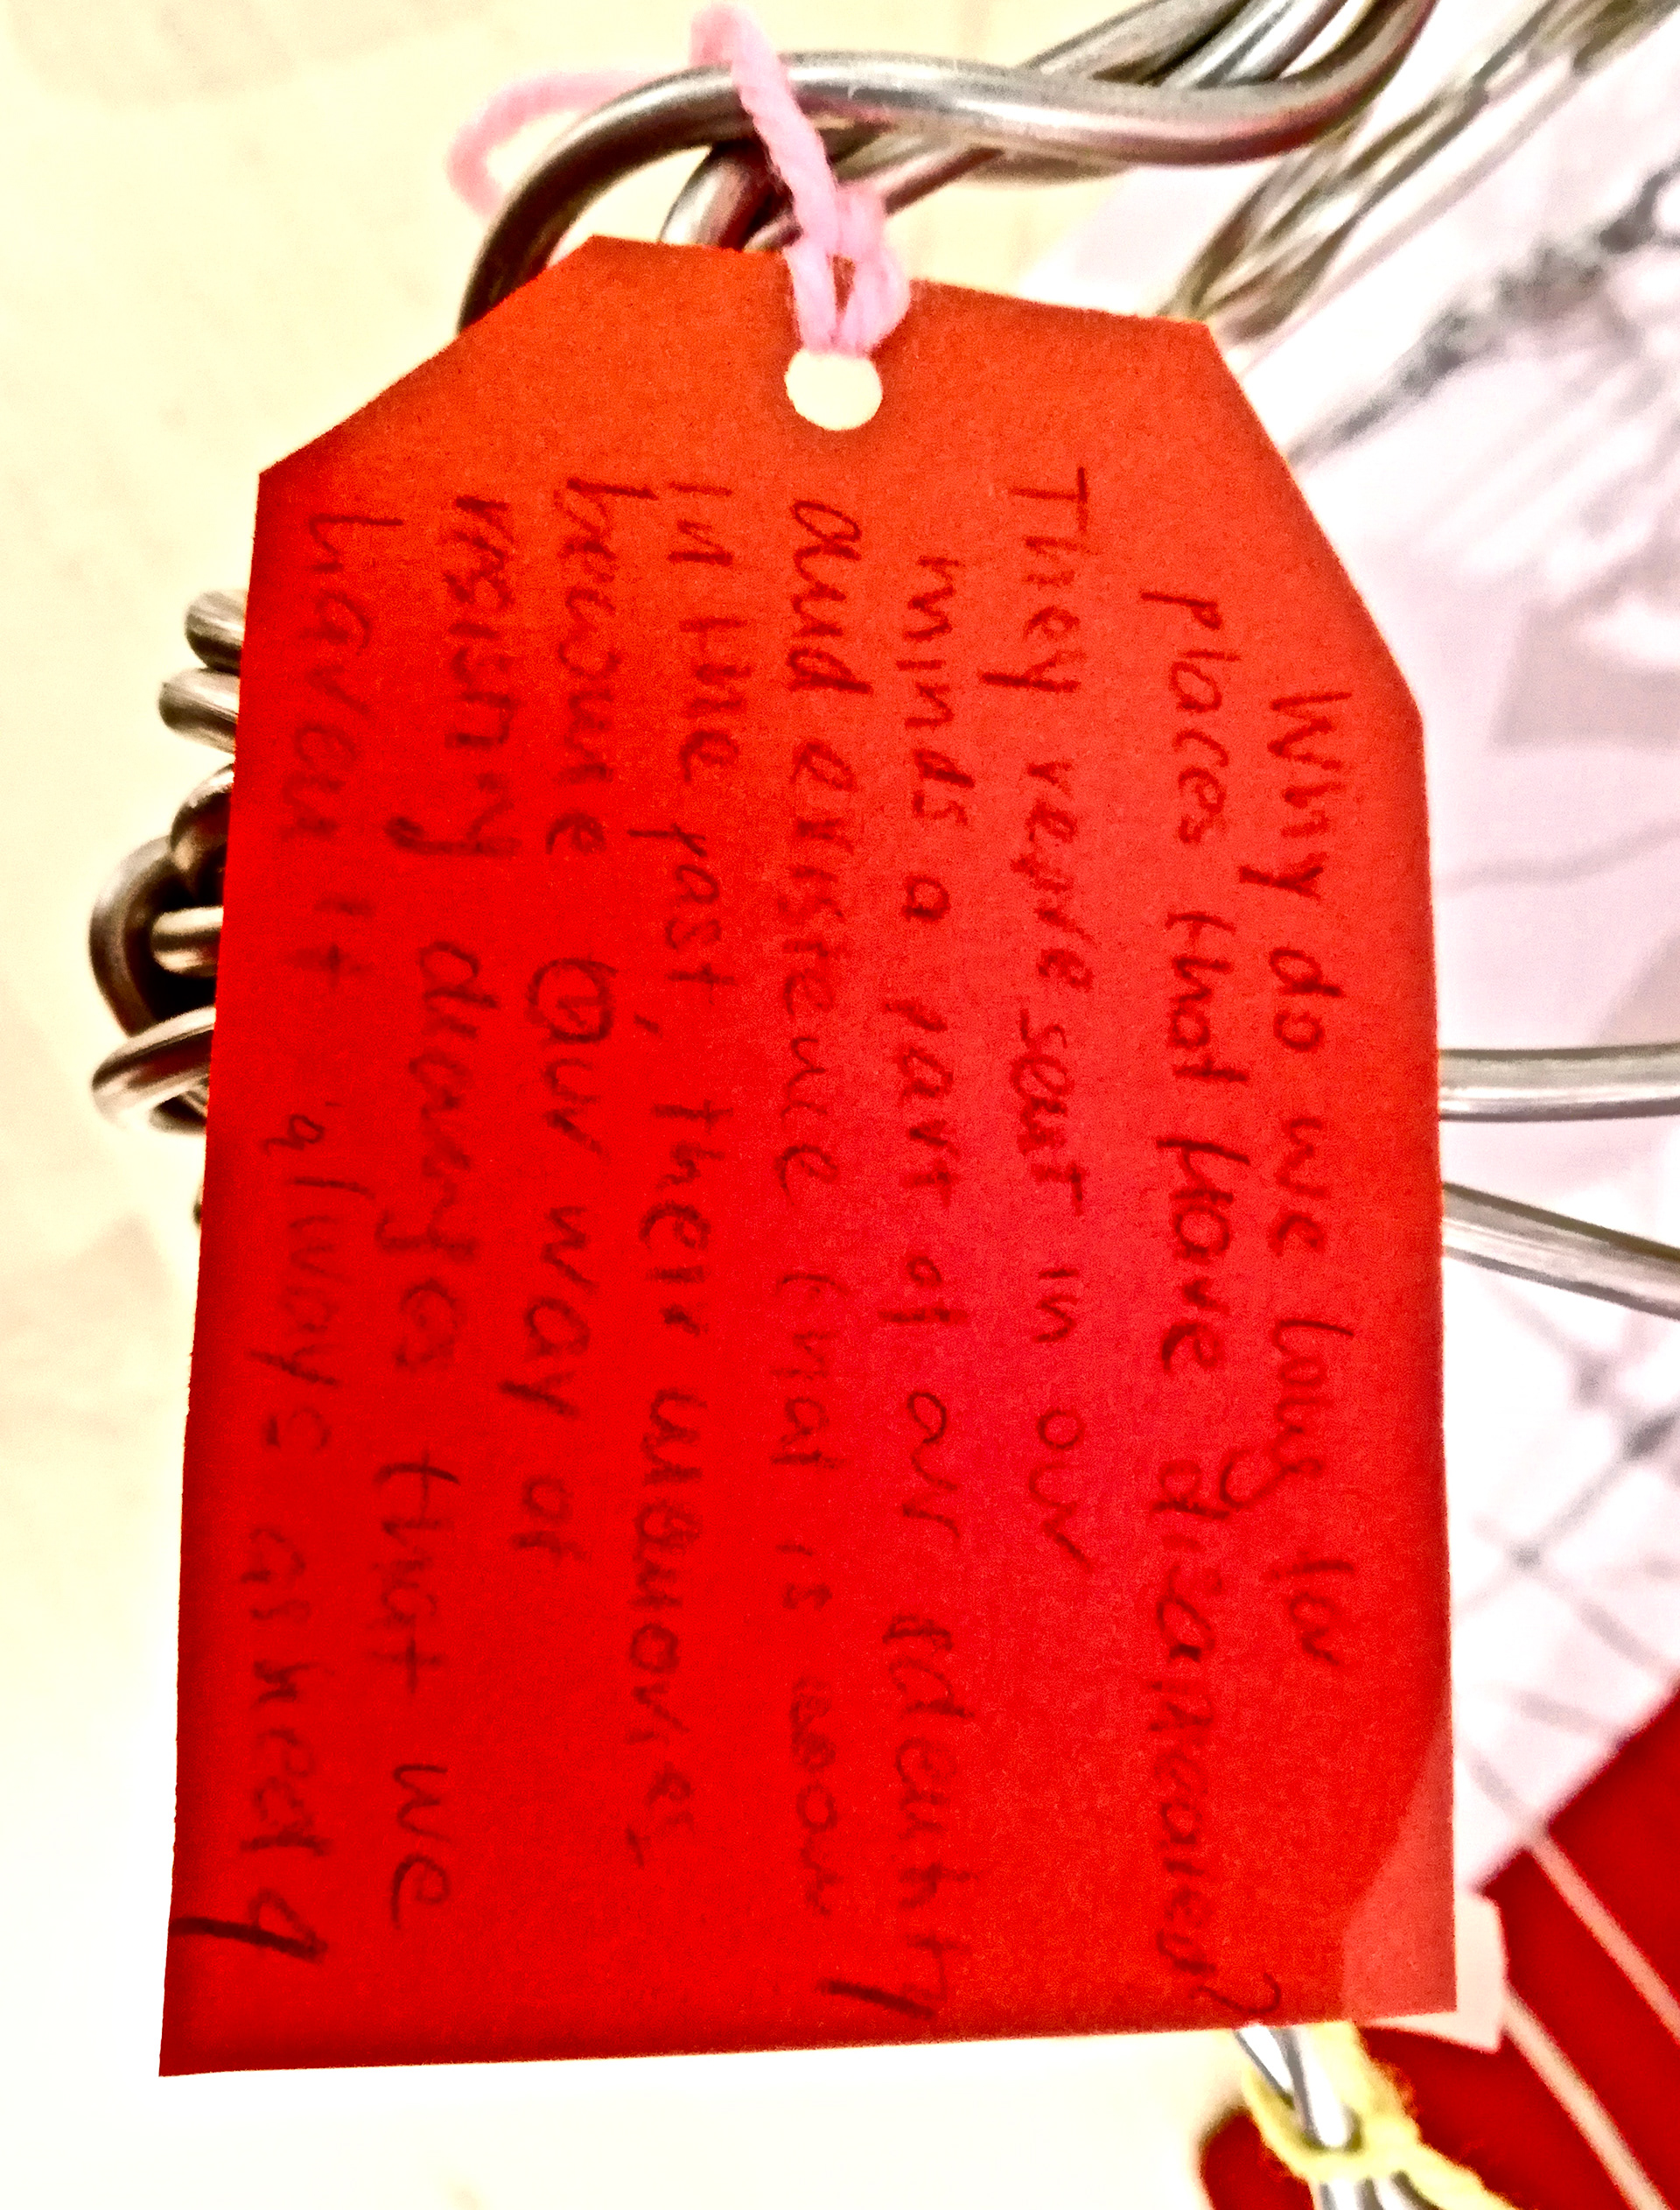 Why do we long for
places that have disapeared?
They represent in our
minds a part of our identity
and existence that is
in the past, their memories
become our way of
changes that we
haven't always asked